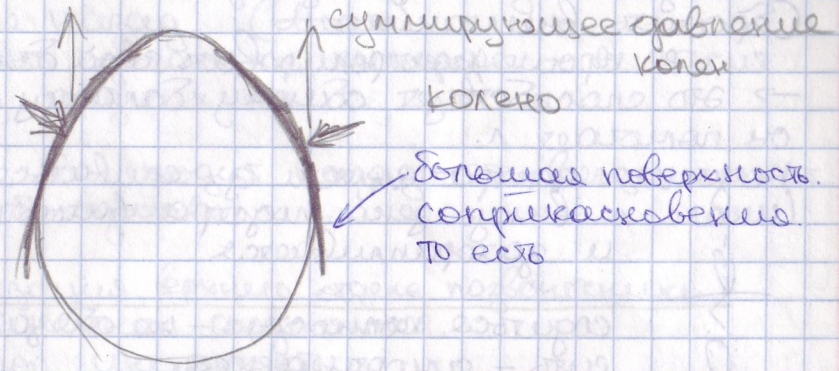 суммирующее давление
колен
колено
большая поверхность.
соприкасновения.
то есть